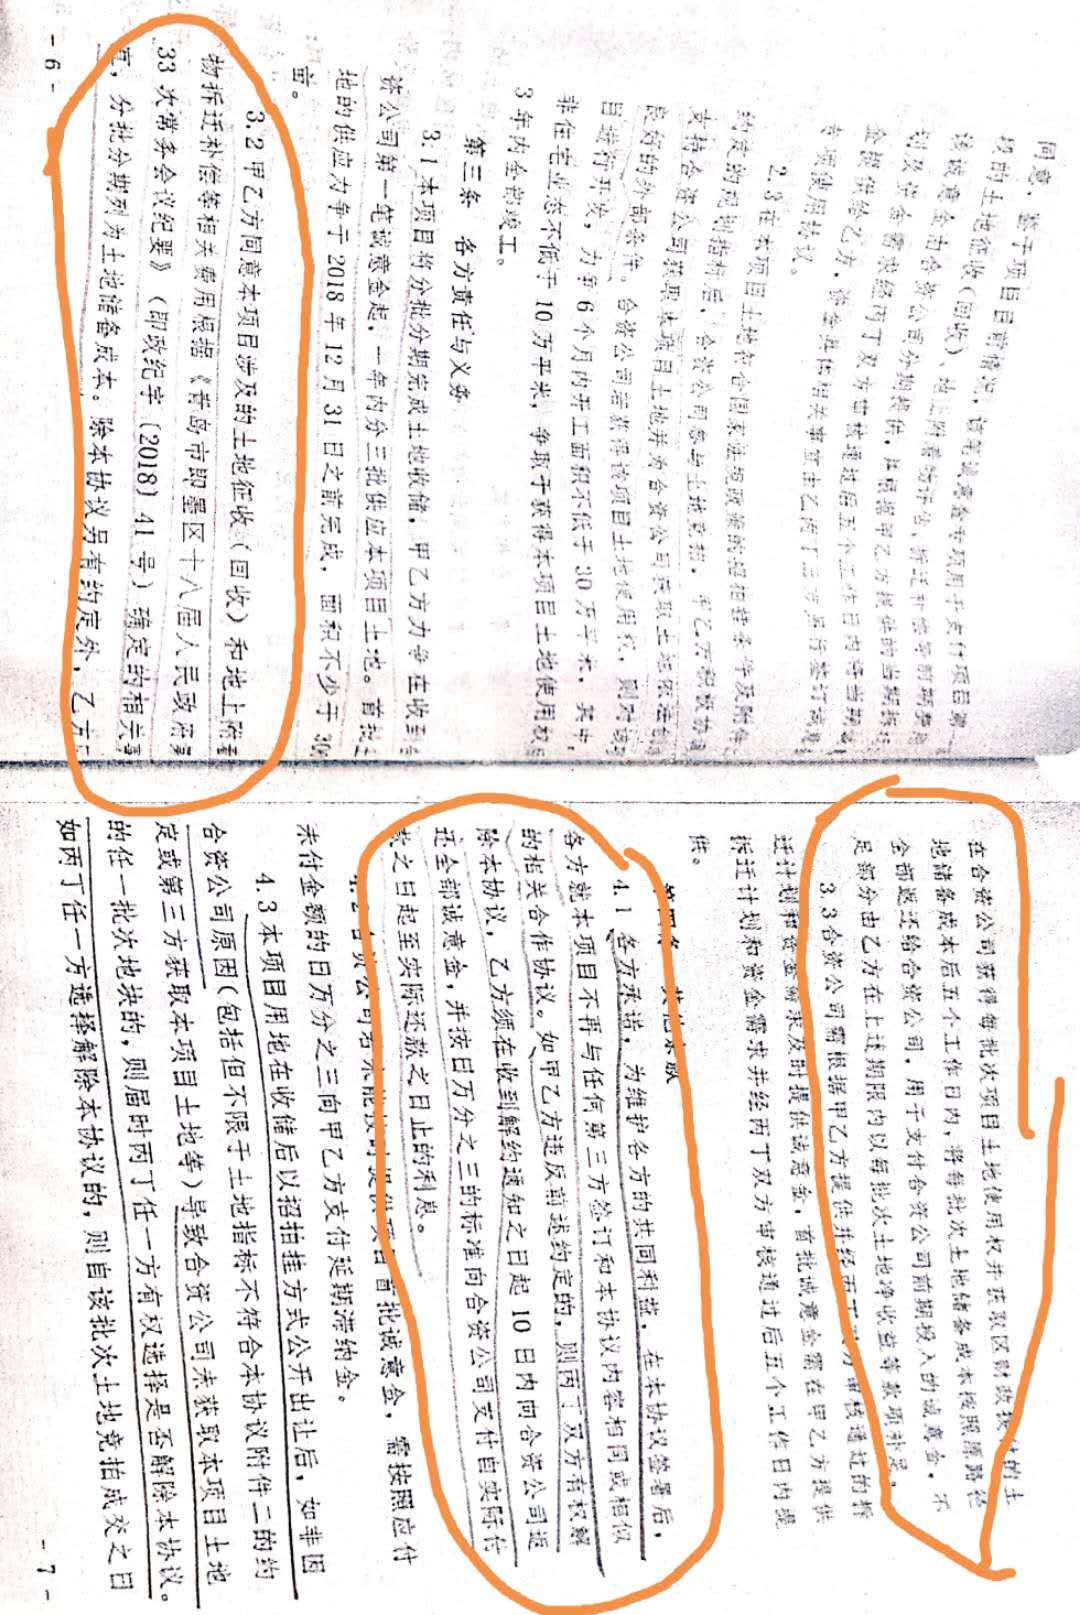 同意，鉴于项目目前情况，该笔诚意金专项用于支付项目
项目土地征收（回收）、地上附着物评估、拆迁补偿等前期费用
该诚意金由合资公司分期提供，并根据甲乙方提供的当期拆
划及资金需求经丙丁双方审核通过后五个工作日内将当期
金提供给乙方，资金具体相关事宜由乙丙丁三方另行签订
专项使用协议。
2.3在本项目土地符合国家法规政策的招拍挂条件及附件
约定的规划指标后，合资公司参与土地竞拍，甲乙方积极协
支持合资公司获取本项目土地并为合资公司获取土地依法创
良好的外部条件。合资公司若获得该项目土地使用权，则对该
目进行开发，力争6个月内开工面积不低于30万平米，其中，
非住宅业态不低于10万平米，争取于获得本项目土地使用权
3年内全部竣工。
第三条 各方责任与义务
3.1本项目将分批分期完成土地收储，甲乙方力争在收到
资公司第一笔诚意金起，一年内分三批供应本项目土地。首批
地的供应力争于2018年12月31日之前完成，面积不少于30
亩。
3.2甲乙方同意本项目涉及的土地征收（回收）和地上附着
物拆迁补偿等相关费用根据《青岛市即墨区十八届人民政府第
33次常务会议纪要》（即政纪字〔2018〕41号）确定的相关事
宜，分批分期列为土地储备成本。除本协议另有约定外，乙方
- 6 -
在合资公司获得每批次项目土地使用权并获取区财政拨付的土
地储备成本后五个工作日内，将每批次土地储备成本按照原路径
全部返还给合资公司，用于支付合资公司前期投入的诚意金，不
足部分由乙方在上述期限内以每批次土地净收益等款项补足。
3.3合资公司需根据甲乙方提供并经丙丁双方审核通过的拆
迁计划和资金需求及时提供诚意金，首批诚意金需在甲乙方提供
拆迁计划和资金需求并经丙丁双方审核通过后五个工作日内提
供。
第四条 其他条款
4.1 各方承诺，为维护各方的共同利益，在本协议签署后，
各方就本项目不再与任何第三方签订和本协议内容相同或相似
的相关合作协议。如甲乙方违反前述约定的，则丙丁双方有权解
除本协议，乙方须在收到解约通知之日起10日内向合资公司返
还全部诚意金，并按日万分之三的标准向合资公司支付自实际付
款之日起至实际还款之日止的利息。
4.2合资公司若未能按时提供项目首批诚意金，需按照应付
未付金额的日万分之三向甲乙方支付延期滞纳金。
4.3本项目用地在收储后以招拍挂方式公开出让后，如非因
合资公司原因（包括但不限于土地指标不符合本协议附件二的约
定或第三方获取本项目土地等）导致合资公司未获取本项目土地
的任一批次地块的，则届时丙丁任一方有权选择是否解除本协议。
如丙丁任一方选择解除本协议的，则自该批次土地竞拍成交之日
- 7 -